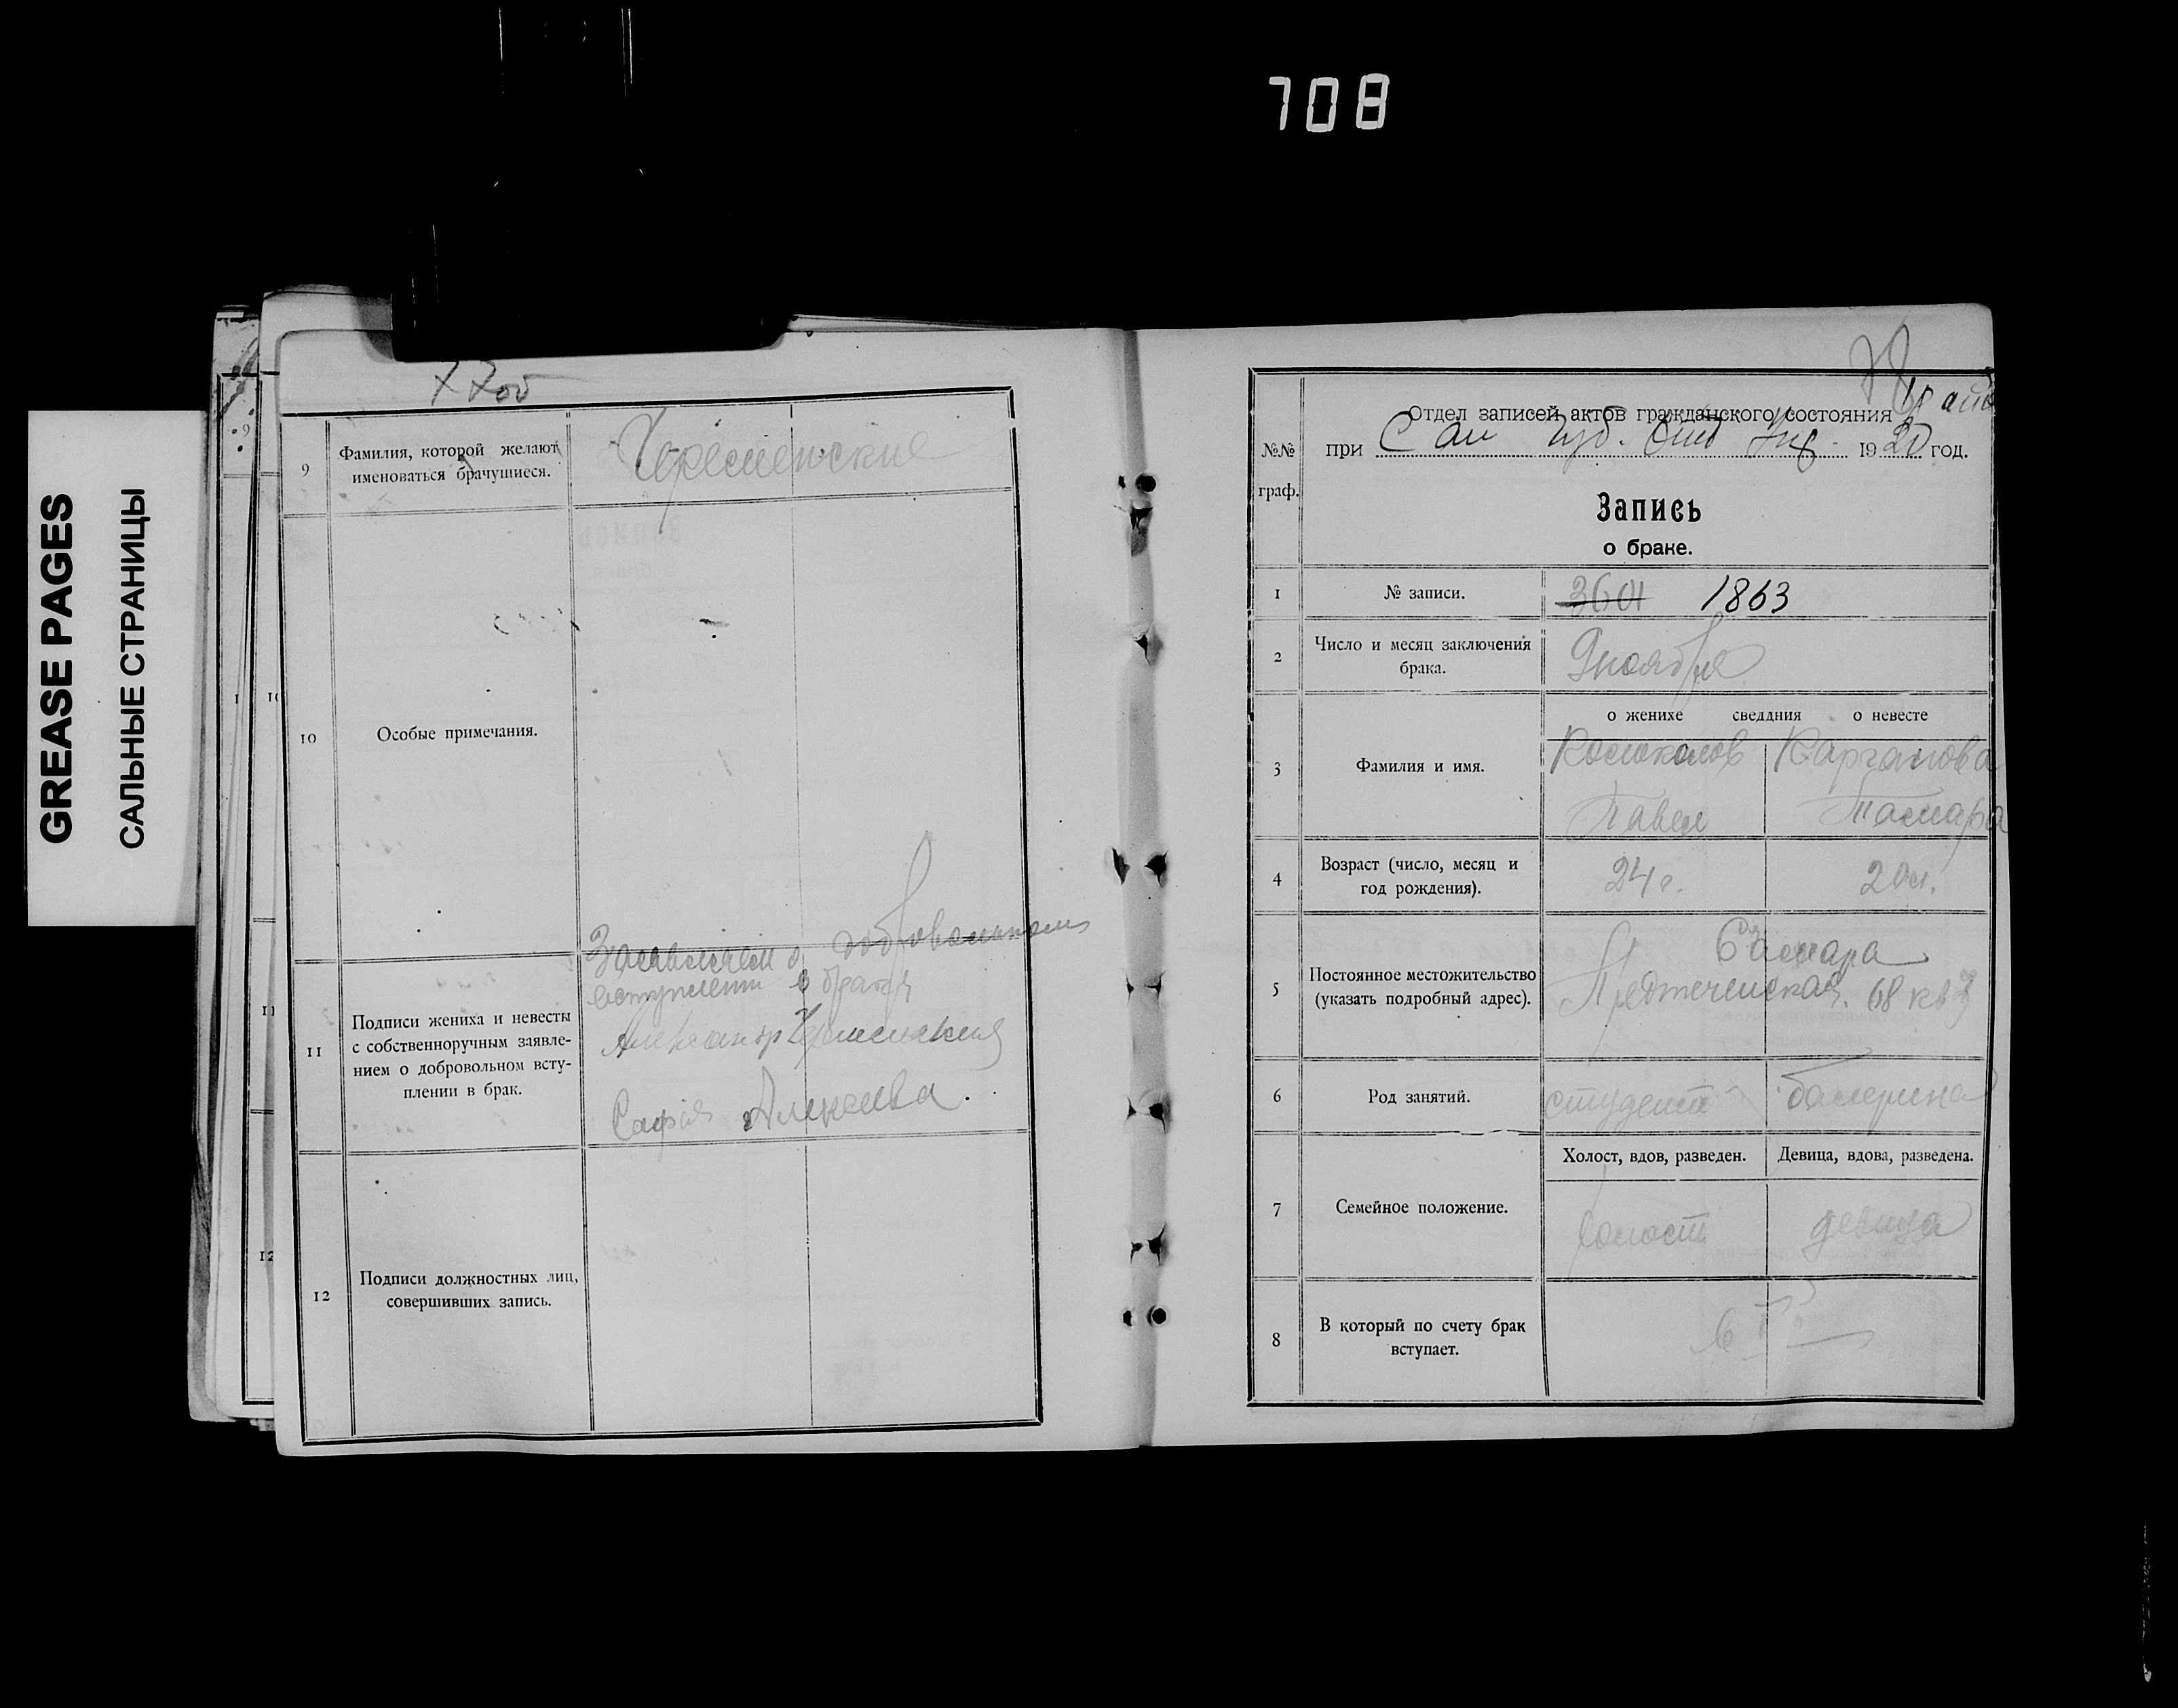 708
GREASE PAGES
САЛЬНЫЕ СТРАНИЦЫ
77об
9
Фамилия, которой желают
именоваться брачущиеся.
Череменские
10
Особые примечания.
11
Подписи жениха и невесты
с собственноручным заявле-
нием о добровольном всту-
плении в брак.
Заявляем о добровольном
вступлении в брак
Александр Череменский
София Алексеева.
12
Подписи должностных лиц,
совершивших запись.
78
№№
граф.
Отдел записей актов гражданского состояния
при Сам Губ. Отд Упр 1920 год.
Запись
о браке.
1
№ записи.
3601 1863
2
Число и месяц заключения
брака.
9 ноября
о женихе сведдния о невесте
3
Фамилия и имя.
Карганова
Павел Тамара
4
Возраст (число, месяц и
год рождения).
24 г. 20 л.
5
Постоянное местожительство
(указать подробный адрес).
Самара
Предтеченская 68 кв 3
6
Род занятий.
студент балерина
Холост, вдов, разведен. Девица, вдова, разведена.
7
Семейное положение.
холост девица
8
В который по счету брак
вступает.
в I